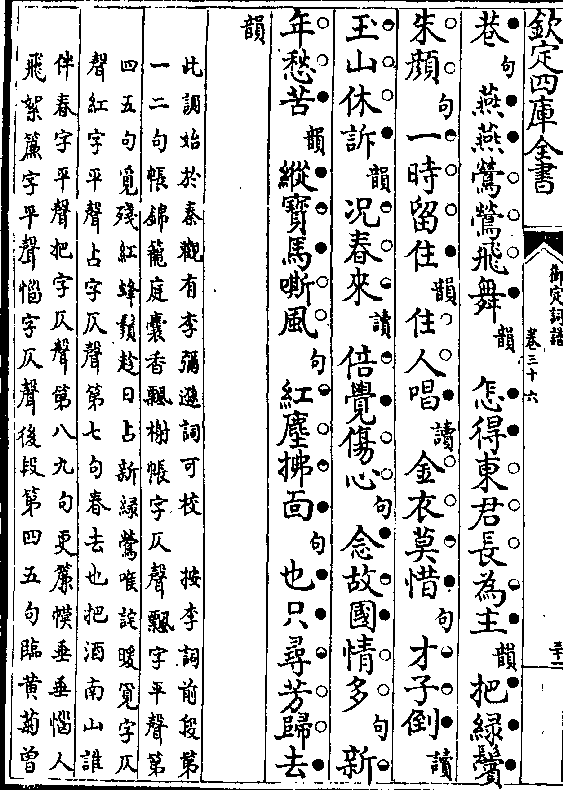 欽定四庫全書
御定詞譜
卷三十六
巷句燕燕鶯鶯飛舞韻怎得東君長為主韻把綠鬢
朱顏句一時留住韻住人唱讀金衣莫惜句才子倒讀
玉山休訴韻况春來讀倍覺傷心句念故國情多句新
年愁苦韻縱寶馬嘶風句紅塵拂面句也只尋芳歸去
韻
此調始於秦觀有李彌遜詞可校 按李詞前段第
一二句帳錦籠庭囊香飄榭帳字仄聲飄字平聲第
四五句覓殘紅蜂鬚趁日占新緑鶯喉詫暖覓字仄
聲紅字平聲占字仄聲第七句春去也把酒南山誰
伴春字平聲把字仄聲第八九句更簾幙垂垂惱人
飛絮簾字平聲惱字仄聲後段第四五句臨黄菊曽